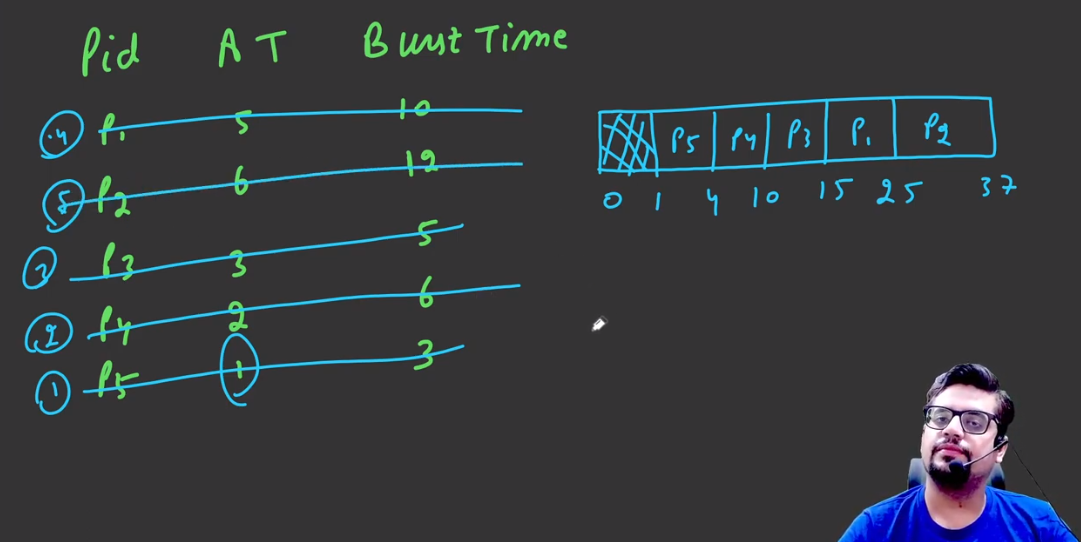 Pid AT Burst Time
4 P1 5 10
5 P2 6 12
3 P3 3 5
2 P4 2 6
1 P5 1 3
P5 P4 P3 P1 P2
0 1 4 10 15 25 37